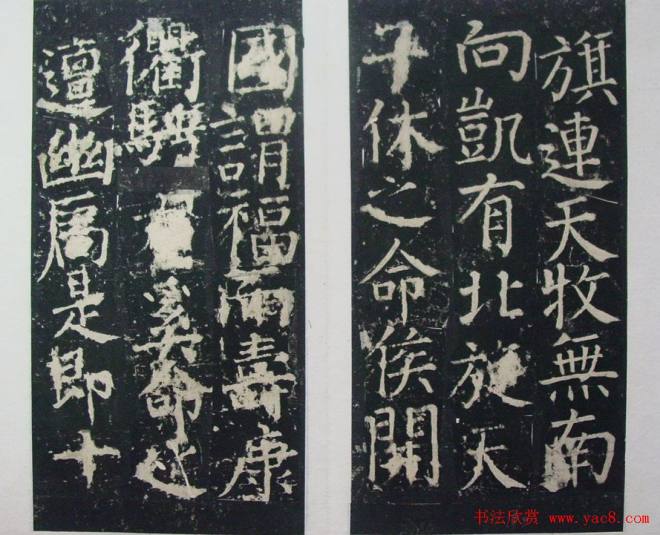 旗連天牧無南
向凱有北旋天
子休之命侯開
國謂福而壽康
衢騁奚命之
邅幽屬是即十
书法欣赏 www.yac8.com